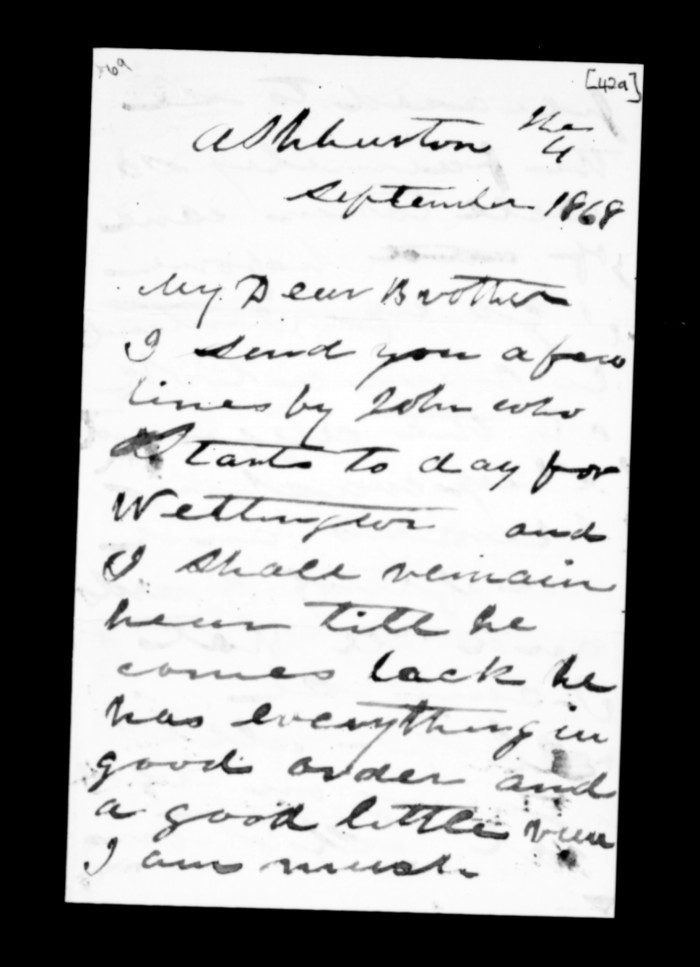 69
[42a]
Ashburton the
4
September 1868
My Dear Brother
I send you a few
lines by John who
Starts to day for
Wellington and
I shall remain
hear till he
comes back he
has everything in
good order and
a good little run
I am much